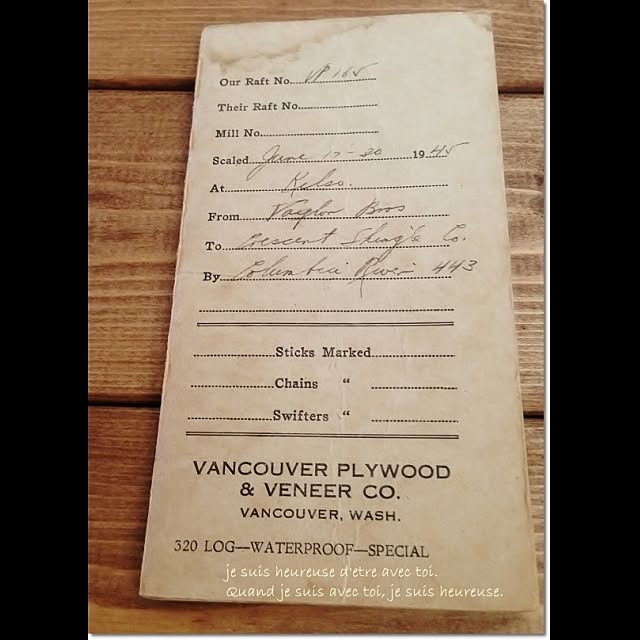 Our Raft No. VP 165
Their Raft No.
Mill No.
Scaled June 17-30 1945
At Kelso.
From Naylor Bros
To Crescent Shingle Co.
By Columbia River 443
Sticks Marked
Chains "
Swifters "
VANCOUVER PLYWOOD
& VENEER CO.
VANCOUVER, WASH.
320 LOG—WATERPROOF—SPECIAL
je suis heureuse d'etre avec toi.
Quand je suis avec toi, je suis heureuse.